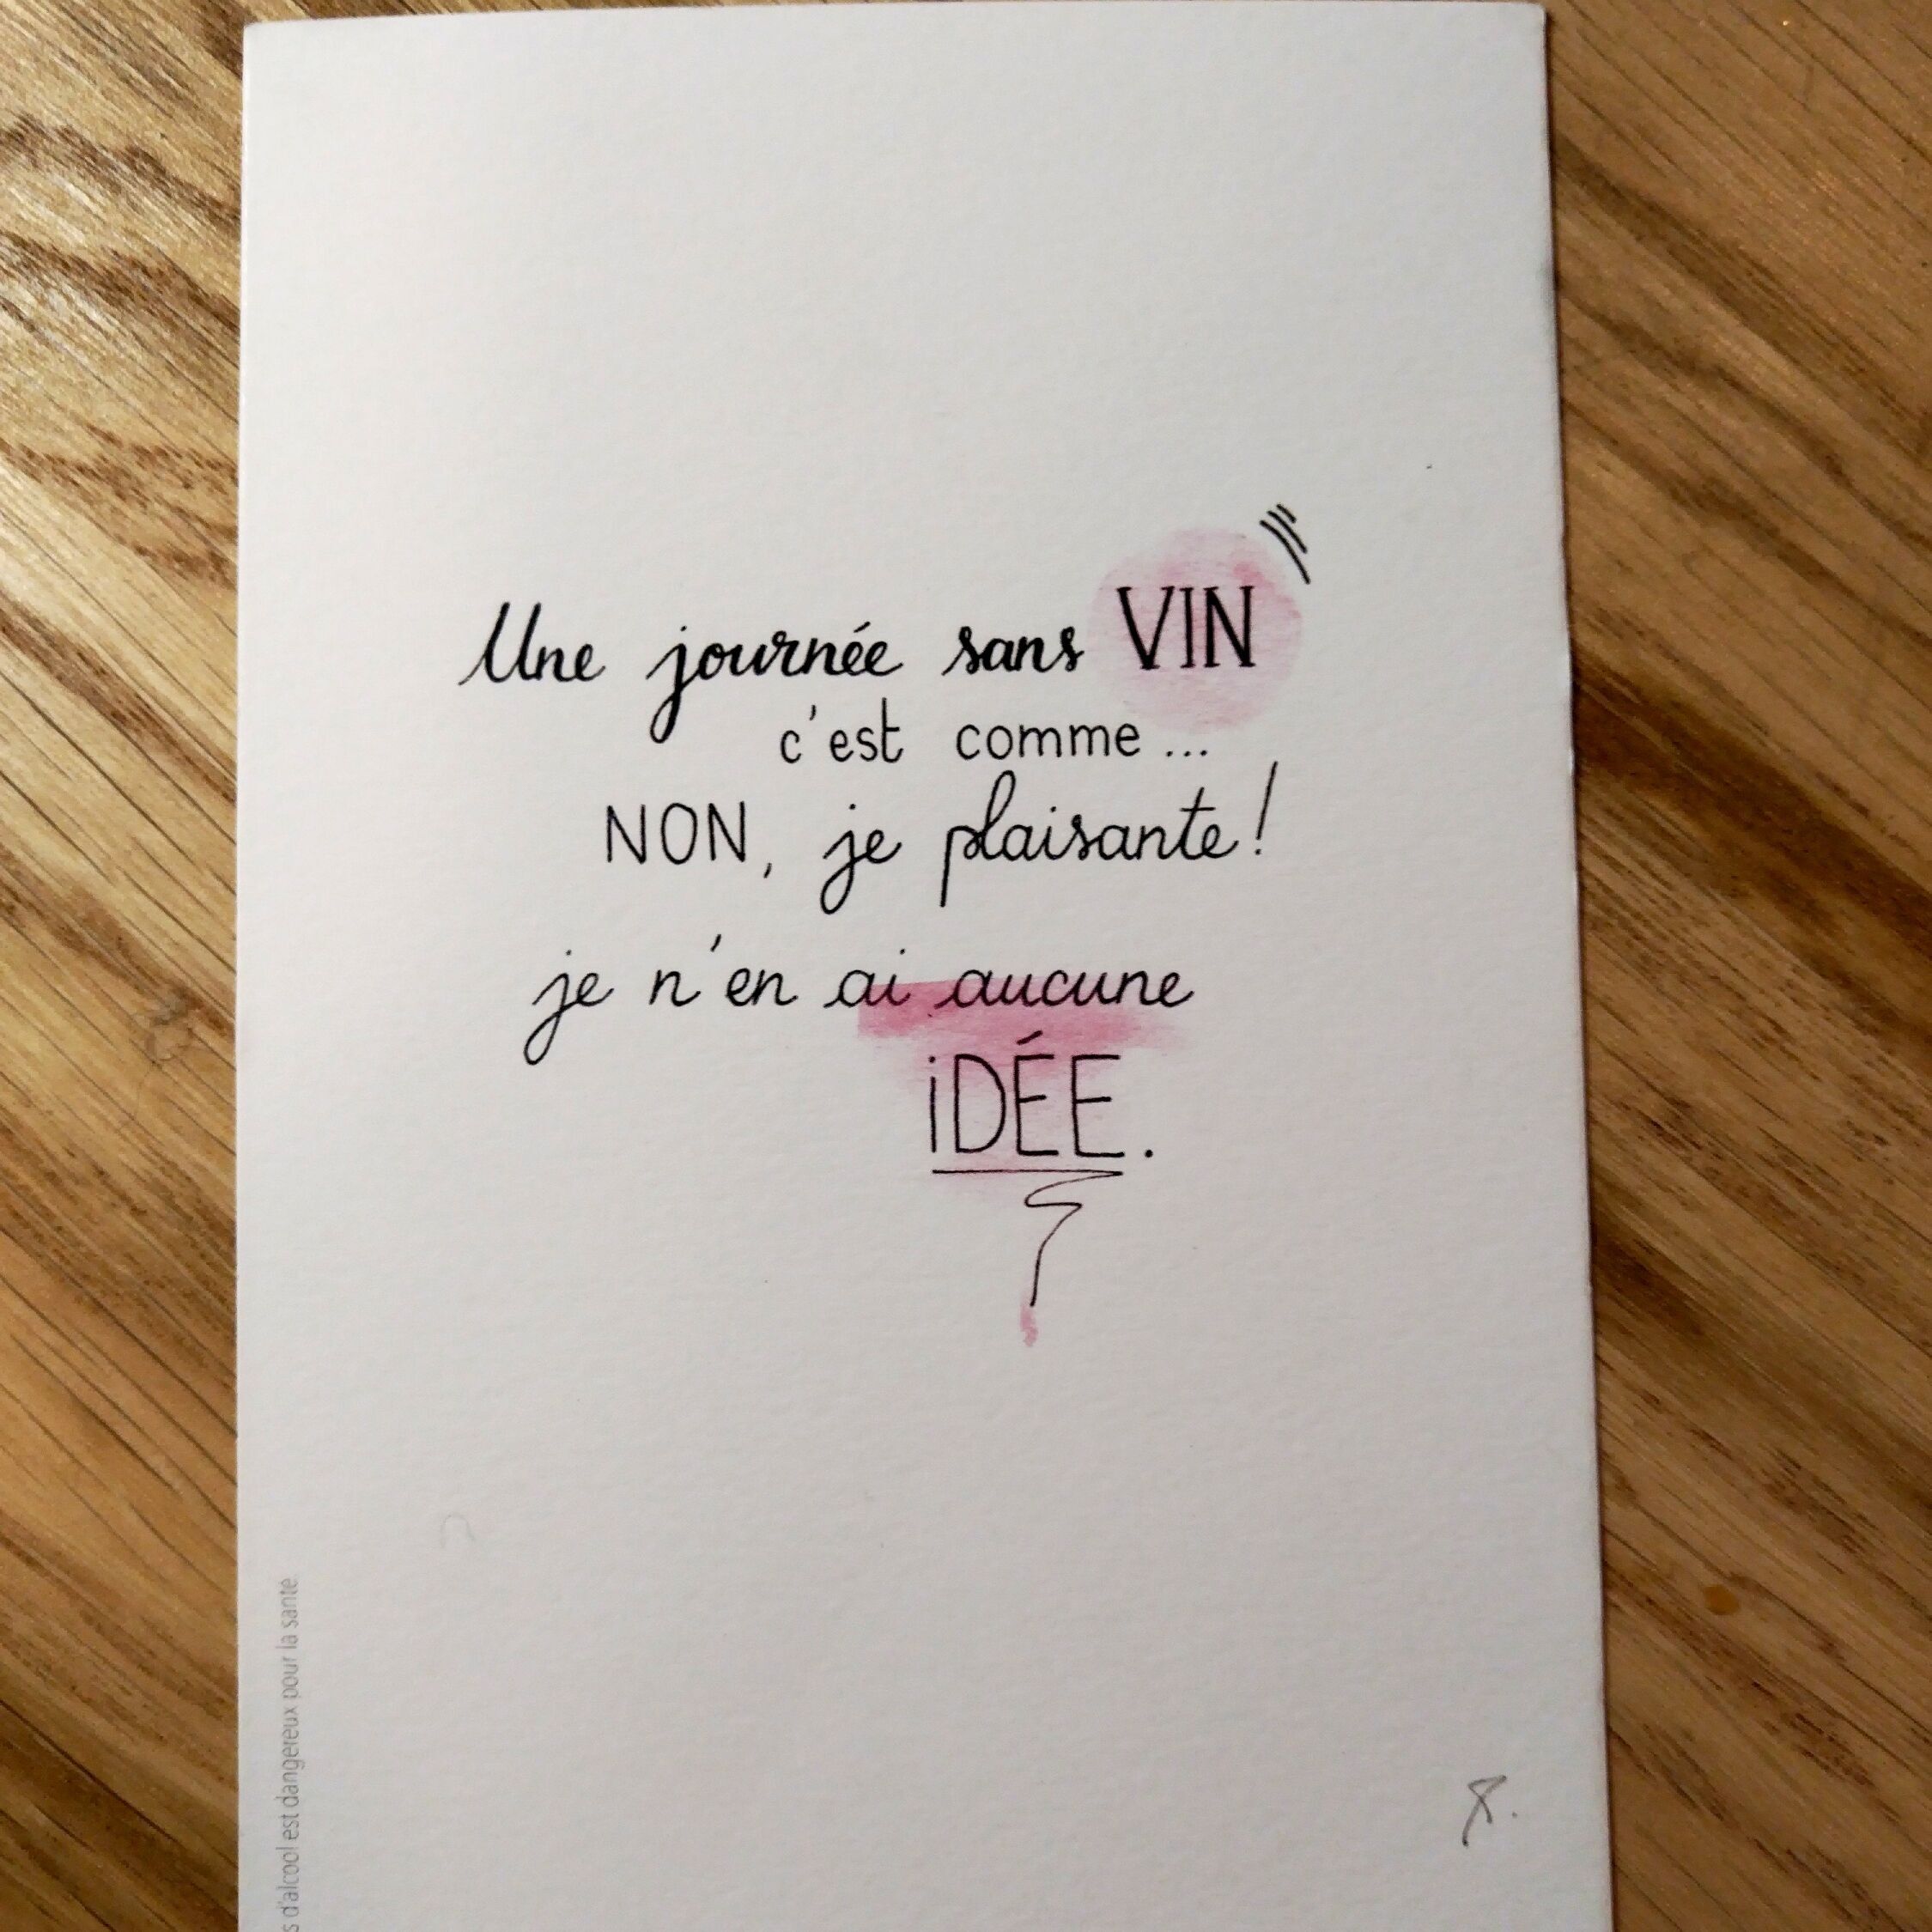 Une journée sans VIN
c'est comme...
NON, je plaisante!
je n'en ai aucune
iDÉE.
d'alcool est dangereux pour la santé.